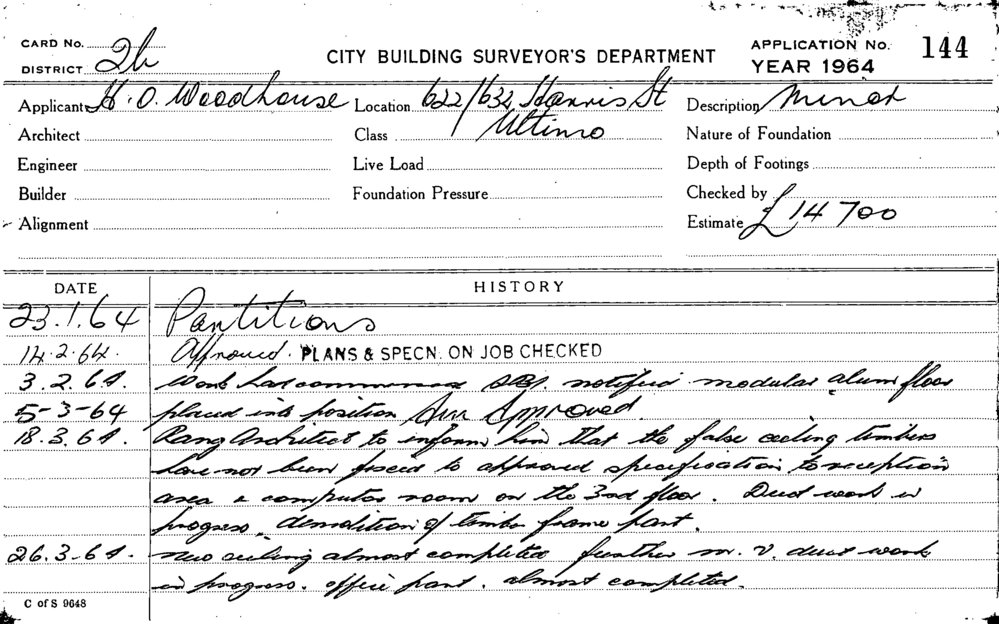 CARD No.
DISTRICT 2b
CITY BUILDING SURVEYOR'S DEPARTMENT
APPLICATION No. 144
YEAR 1964
Applicant H. O. Woodhouse Location 622/632 Harris St Description Minor
Architect Class Ultimo Nature of Foundation
Engineer Live Load Depth of Footings
Builder Foundation Pressure Checked by
Alignment Estimate £14700
DATE HISTORY
23.1.64 Partitions
14.2.64. Approved. PLANS & SPECN. ON JOB CHECKED
3.2.64. Work has commenced notified modular alum floor
5-3-64 placed into position Approved.
18.3.64. Rang Architect to inform him that the false ceiling timbers
have not been to approved specification to reception
area & computor room on the 3rd floor. Duct work in
progress. demolition of timber frame part.
26.3.64. new ceiling almost completed further m.v. duct work
in progress. office part. almost completed.
C of S 9648